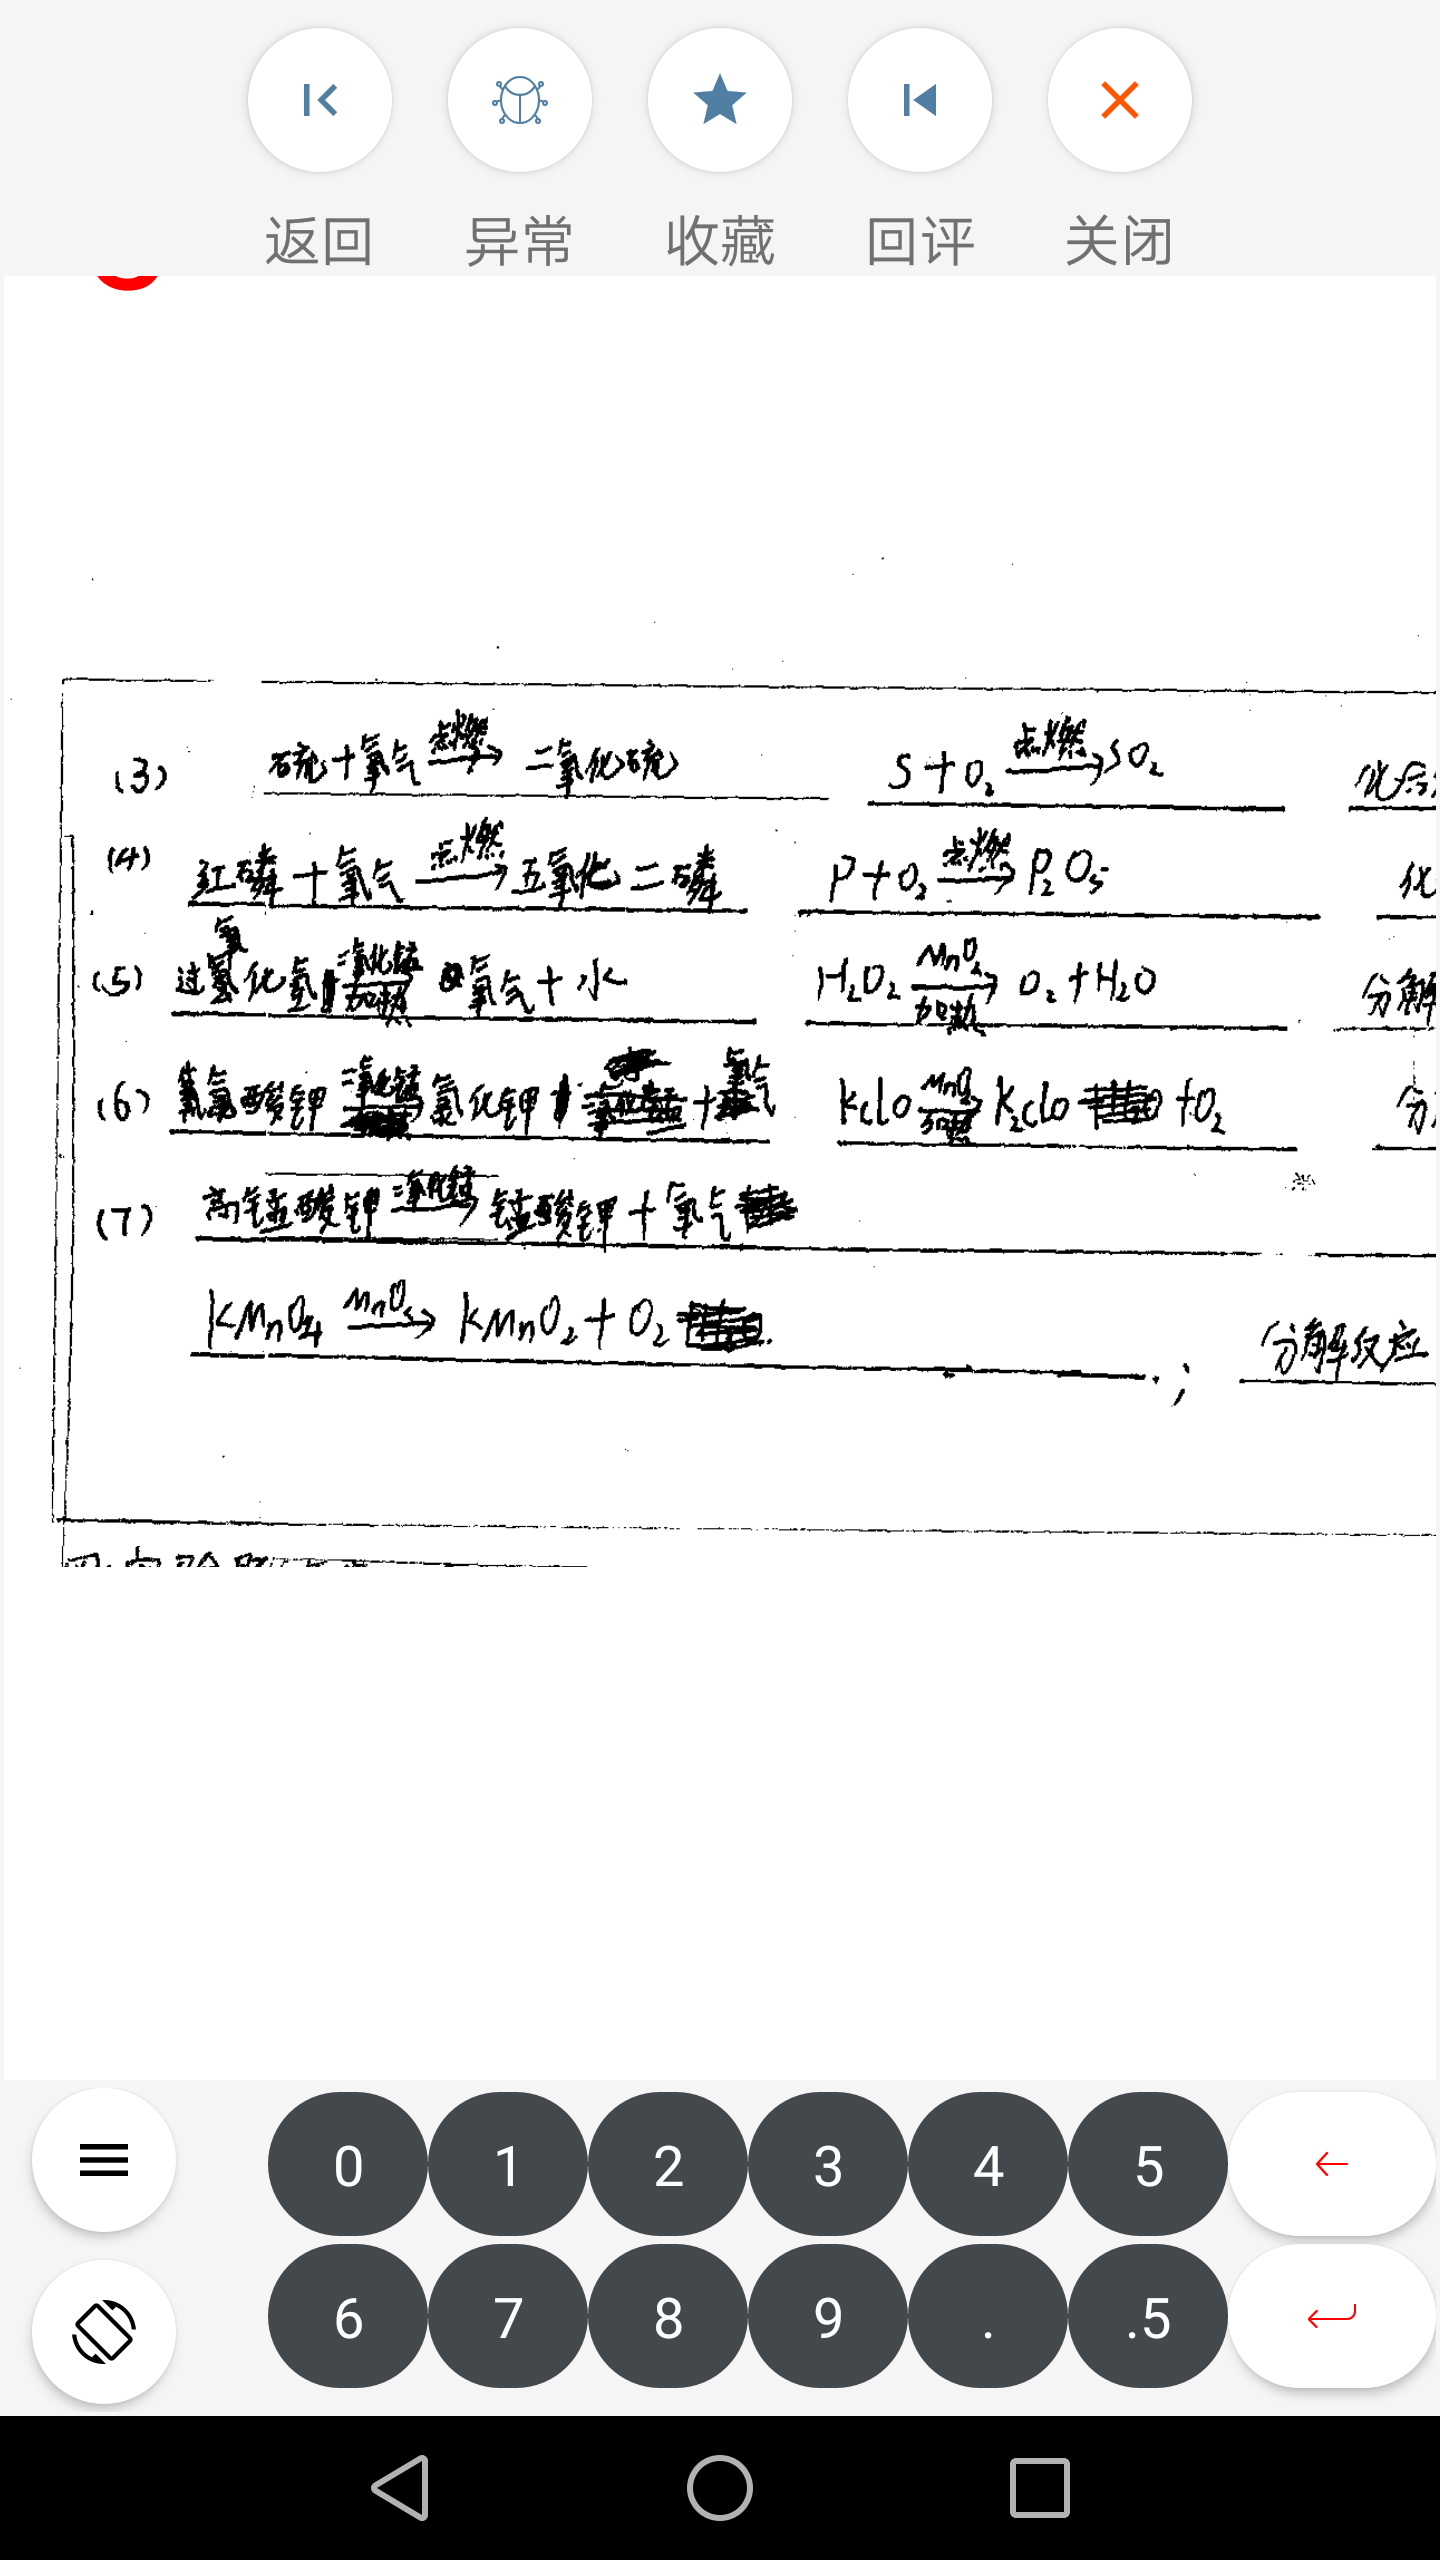 返回 异常 收藏 回评 关闭
(3) 硫+氧气 点燃→ 二氧化硫 S+O₂ 点燃→ SO₂ 化合
(4) 红磷+氧气 点燃→ 五氧化二磷 P+O₂ 点燃→ P₂O₅ 化
(5) 过氧化氢 二氧化锰→加热 氧气+水 H₂O₂ MnO₂→加热 O₂+H₂O 分解
(6) 氯酸钾 二氧化锰→ 氯化钾 +氧气 KClO MnO₂→加热 K₂ClO +O₂ 分
(7) 高锰酸钾 二氧化锰→ 锰酸钾+氧气
KMnO₄ MnO₂→ KMnO₂+O₂ ; 分解反应
0 1 2 3 4 5 ←
6 7 8 9 . .5